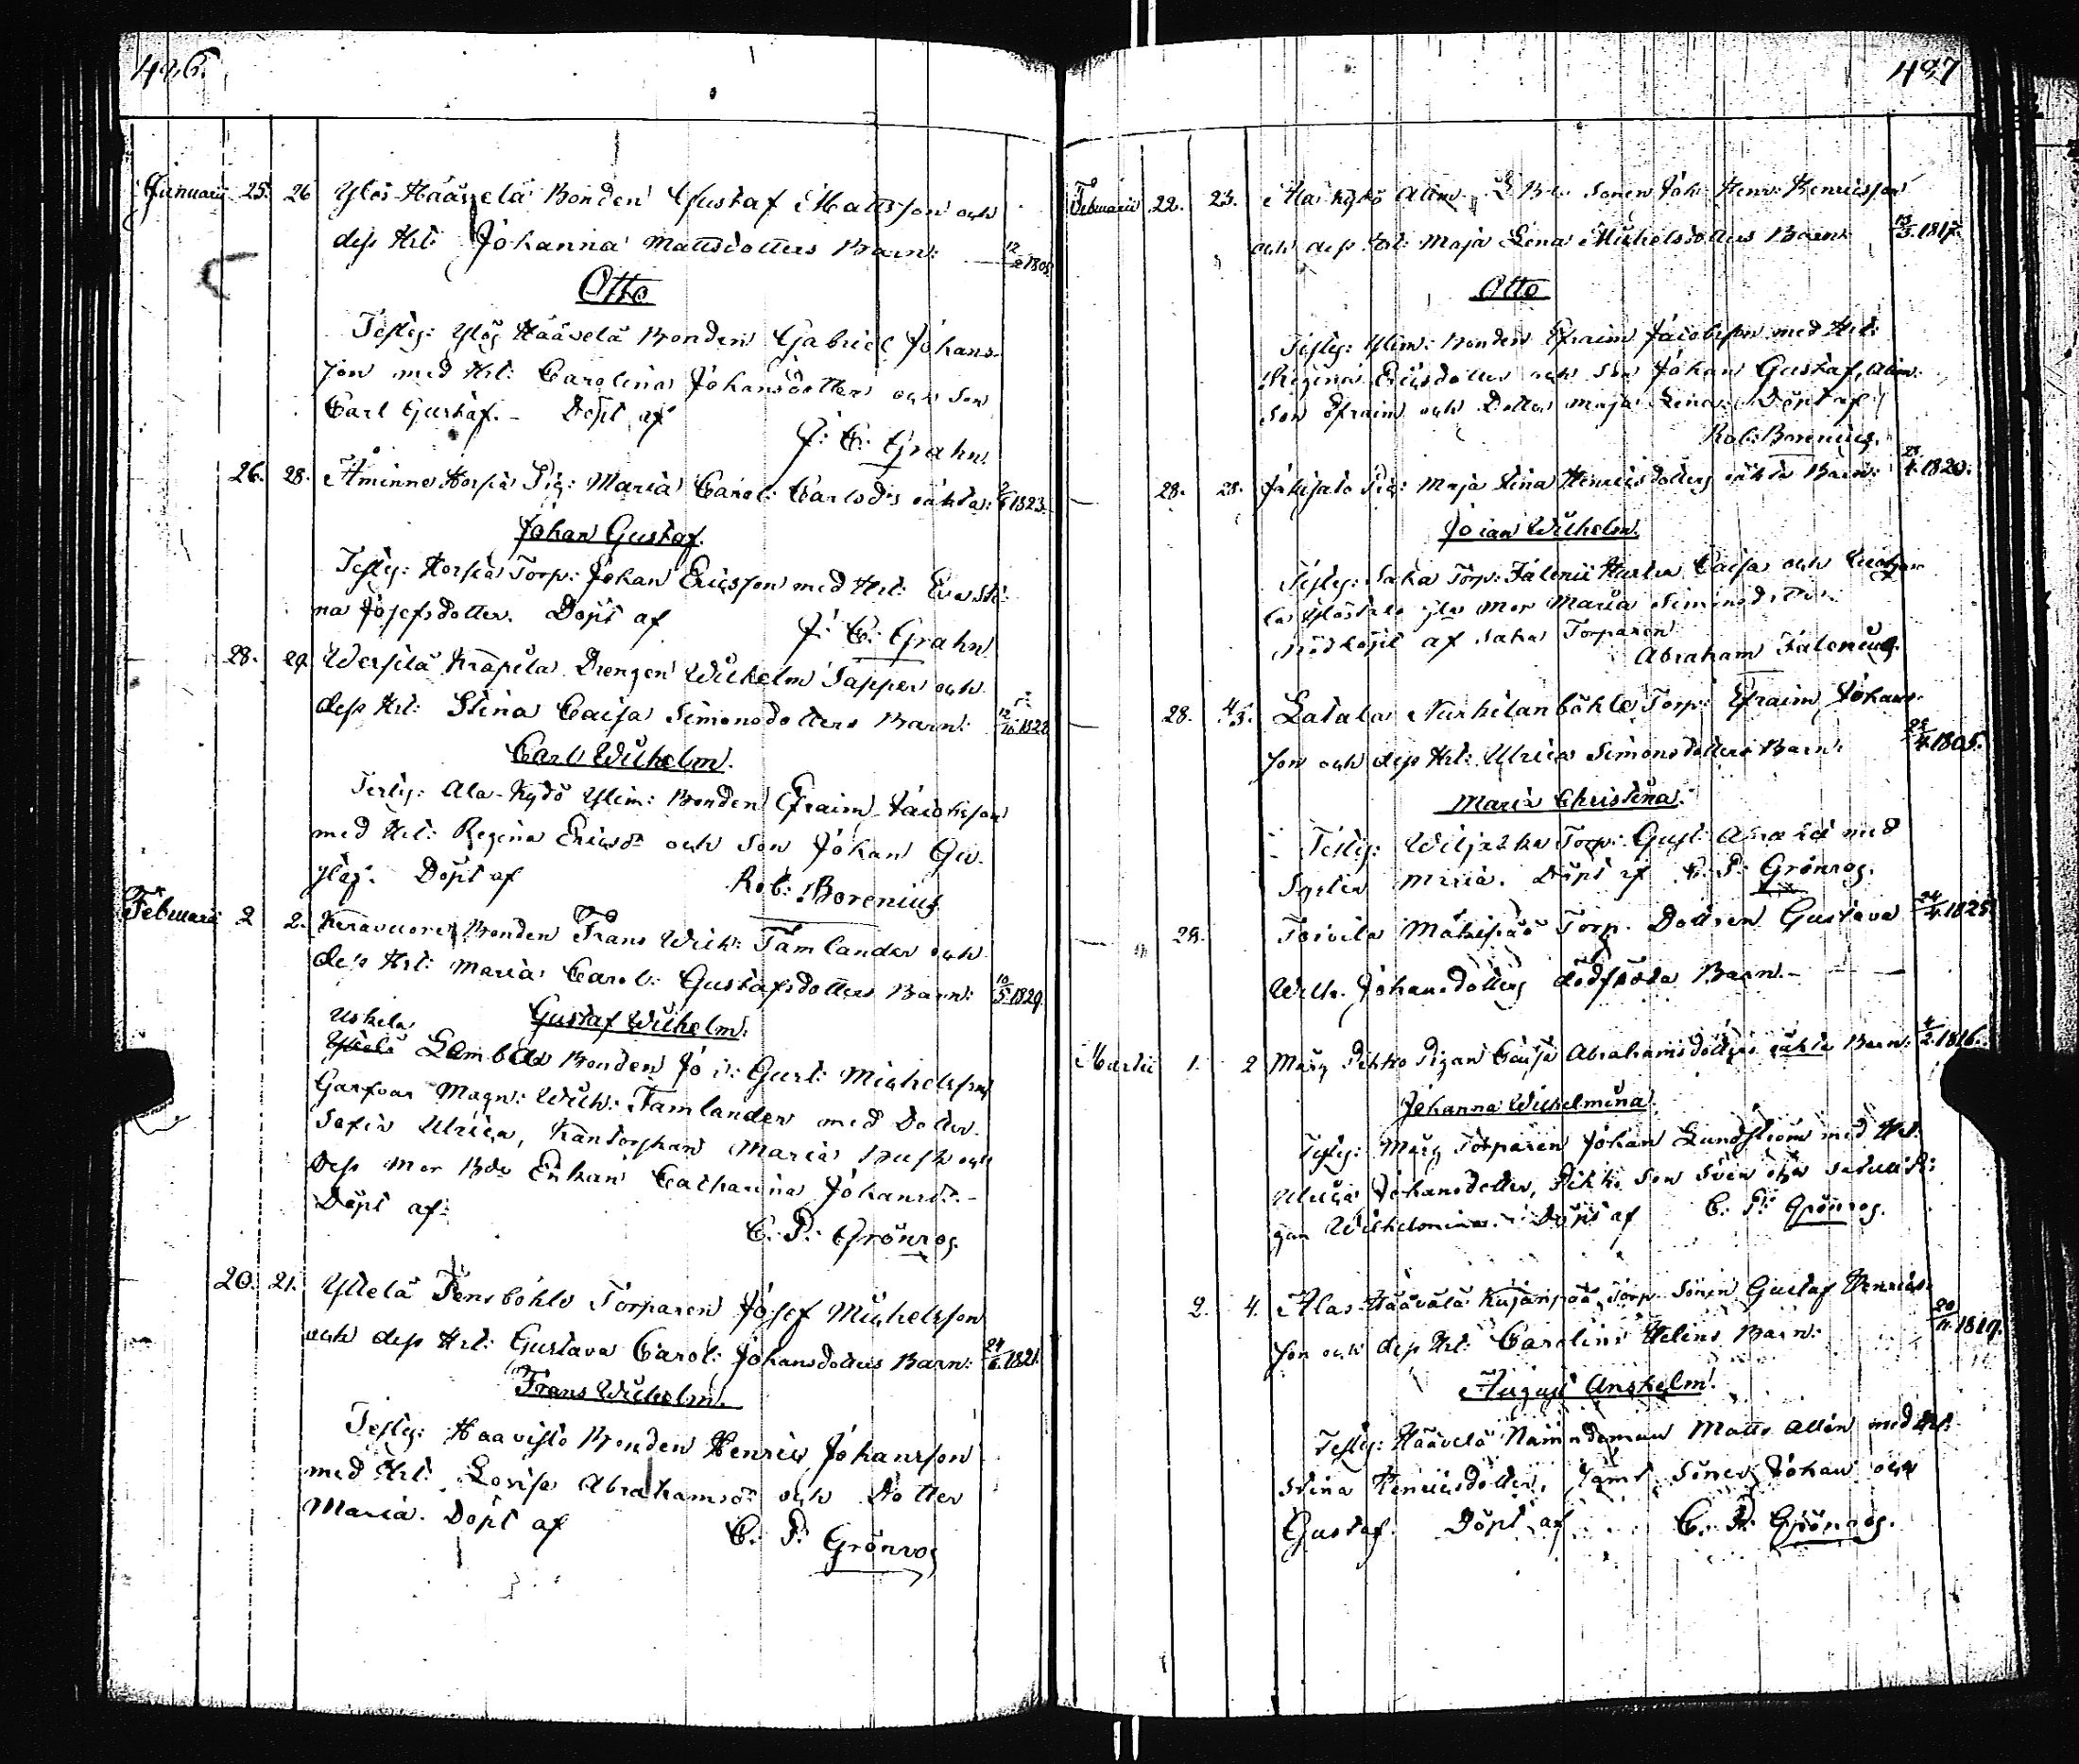 486.
Januarii 25. 26 Ylös-Häävelä Bonden Gustaf Mattsson och
dess Hst: Johanna Mattsdotters Barn: 12/2 1808.
Otto
Testes: Ylös Häävelä Bonden Gabriel Johans-
son med Hst: Carolina Johansdotter och Son
Carl Gustaf. - Döpt af
J: E: Grahn.
26. 28. Åminne Horsia Pig: Maria Carol: Carlsd:s oäkta: 1823.
Johan Gustaf.
Testes: Horsia Torp: Johan Ericsson med Hst: Eva Sti-
na Josefsdotter. Döpt af
J: E: Grahn
28. 29. Knapila Drengen Wilhelm Tapper och
dess Hst: Stina Caisa Simonsdotters Barn: 12/10 1828
Carl Wilhelm.
Testes: Ala-Kydö Bonden Efraim Jacobsson
med Hst: Regina Ericsdr och Son Johan Gu-
staf. Döpt af Rob: Borenius
Februarii 2 2. Keravuore Bonden Frans Wilh: Tamlander och
dess Hst: Maria Carol: Gustafsdotters Barn: 10/5 1829.
Gustaf Wilhelm.
Uskela
Lambola Bonden Joh: Gust: Michelsson
Garfvar Magn: Wilh: Tamlander med Dotter
Sofia Ulrica, Maria och
dess mor Bde Enkan Catharina Johansdr. -
Döpt af:
C. P. Grönros.
20. 21. Yttelä Pensböhle Torparen Josef Michelsson
och dess Hst: Gustava Carol: Johansdotters Barn: 24/6 1821.
Frans Wilhelm.
Testes: Haavisto Bonden Henric Johansson
med Hst: Lovisa Abrahamsdr och Dotter
Maria. Döpt af C. P. Grönros
487
Februarii 22. 23. Ala Kydö Alim. Sonen Joh: Henr: Henricsson
och dess Hst: Maja Lena Michelsdotters Barn: 13/3 1817.
Otto
Testes: Bonden Efraim Jacobsson med Hst:
Regina Ericsdotter och Son Johan Gustaf, Alim:
Son Efraim och Dotter Maja Lena. Döpt af
Rob: Borenius.
28. 28. Pig: Maja Stina Henricsdotters oäkta Barn: 1820.
Johan Wilhelm.
Testes: Saka Torp: Falenii Hustru Caisa och
mor Maria Simonsdotter
Nöddöpt af Saka Torparen
Abraham Falenius.
28. 4/3. Latala Nurkilanböhle Torp: Efraim Johans-
son och dess Hst: Ulrica Simonsdotters Barn: 1805.
Maria Christina.
Testes: Torp: Gust: med
Syster Maria. Döpt af C. P. Grönros.
29. Toivila Mäkipää Torp. Dottren Gustava 24/4 1825
Wilh. Johansdotters dödfödda Barn. -
Martii 1. 2 Märy Pikko Pigan Caisa Abrahamsdotters oäkta Barn: 4/2 1816.
Johanna Wilhelmina.
Testes: Märy Torparen Johan Lundström med Hst:
Ulrica Johansdotter, Pikko Son Sven och
gan Wilhelmina. Döpt af C. P. Grönros.
2. 4. Alas-Häävälä Kujanpää Torp. Sonen Gustaf Henrics-
son och dess Hst: Carolina Helins Barn: 1819.
August Anshelm.
Testes: Häävelä Nämndeman Matts Allén med Hst:
Stina Henricsdotter, samt Söner Johan och
Gustaf. Döpt af C. P. Grönros.